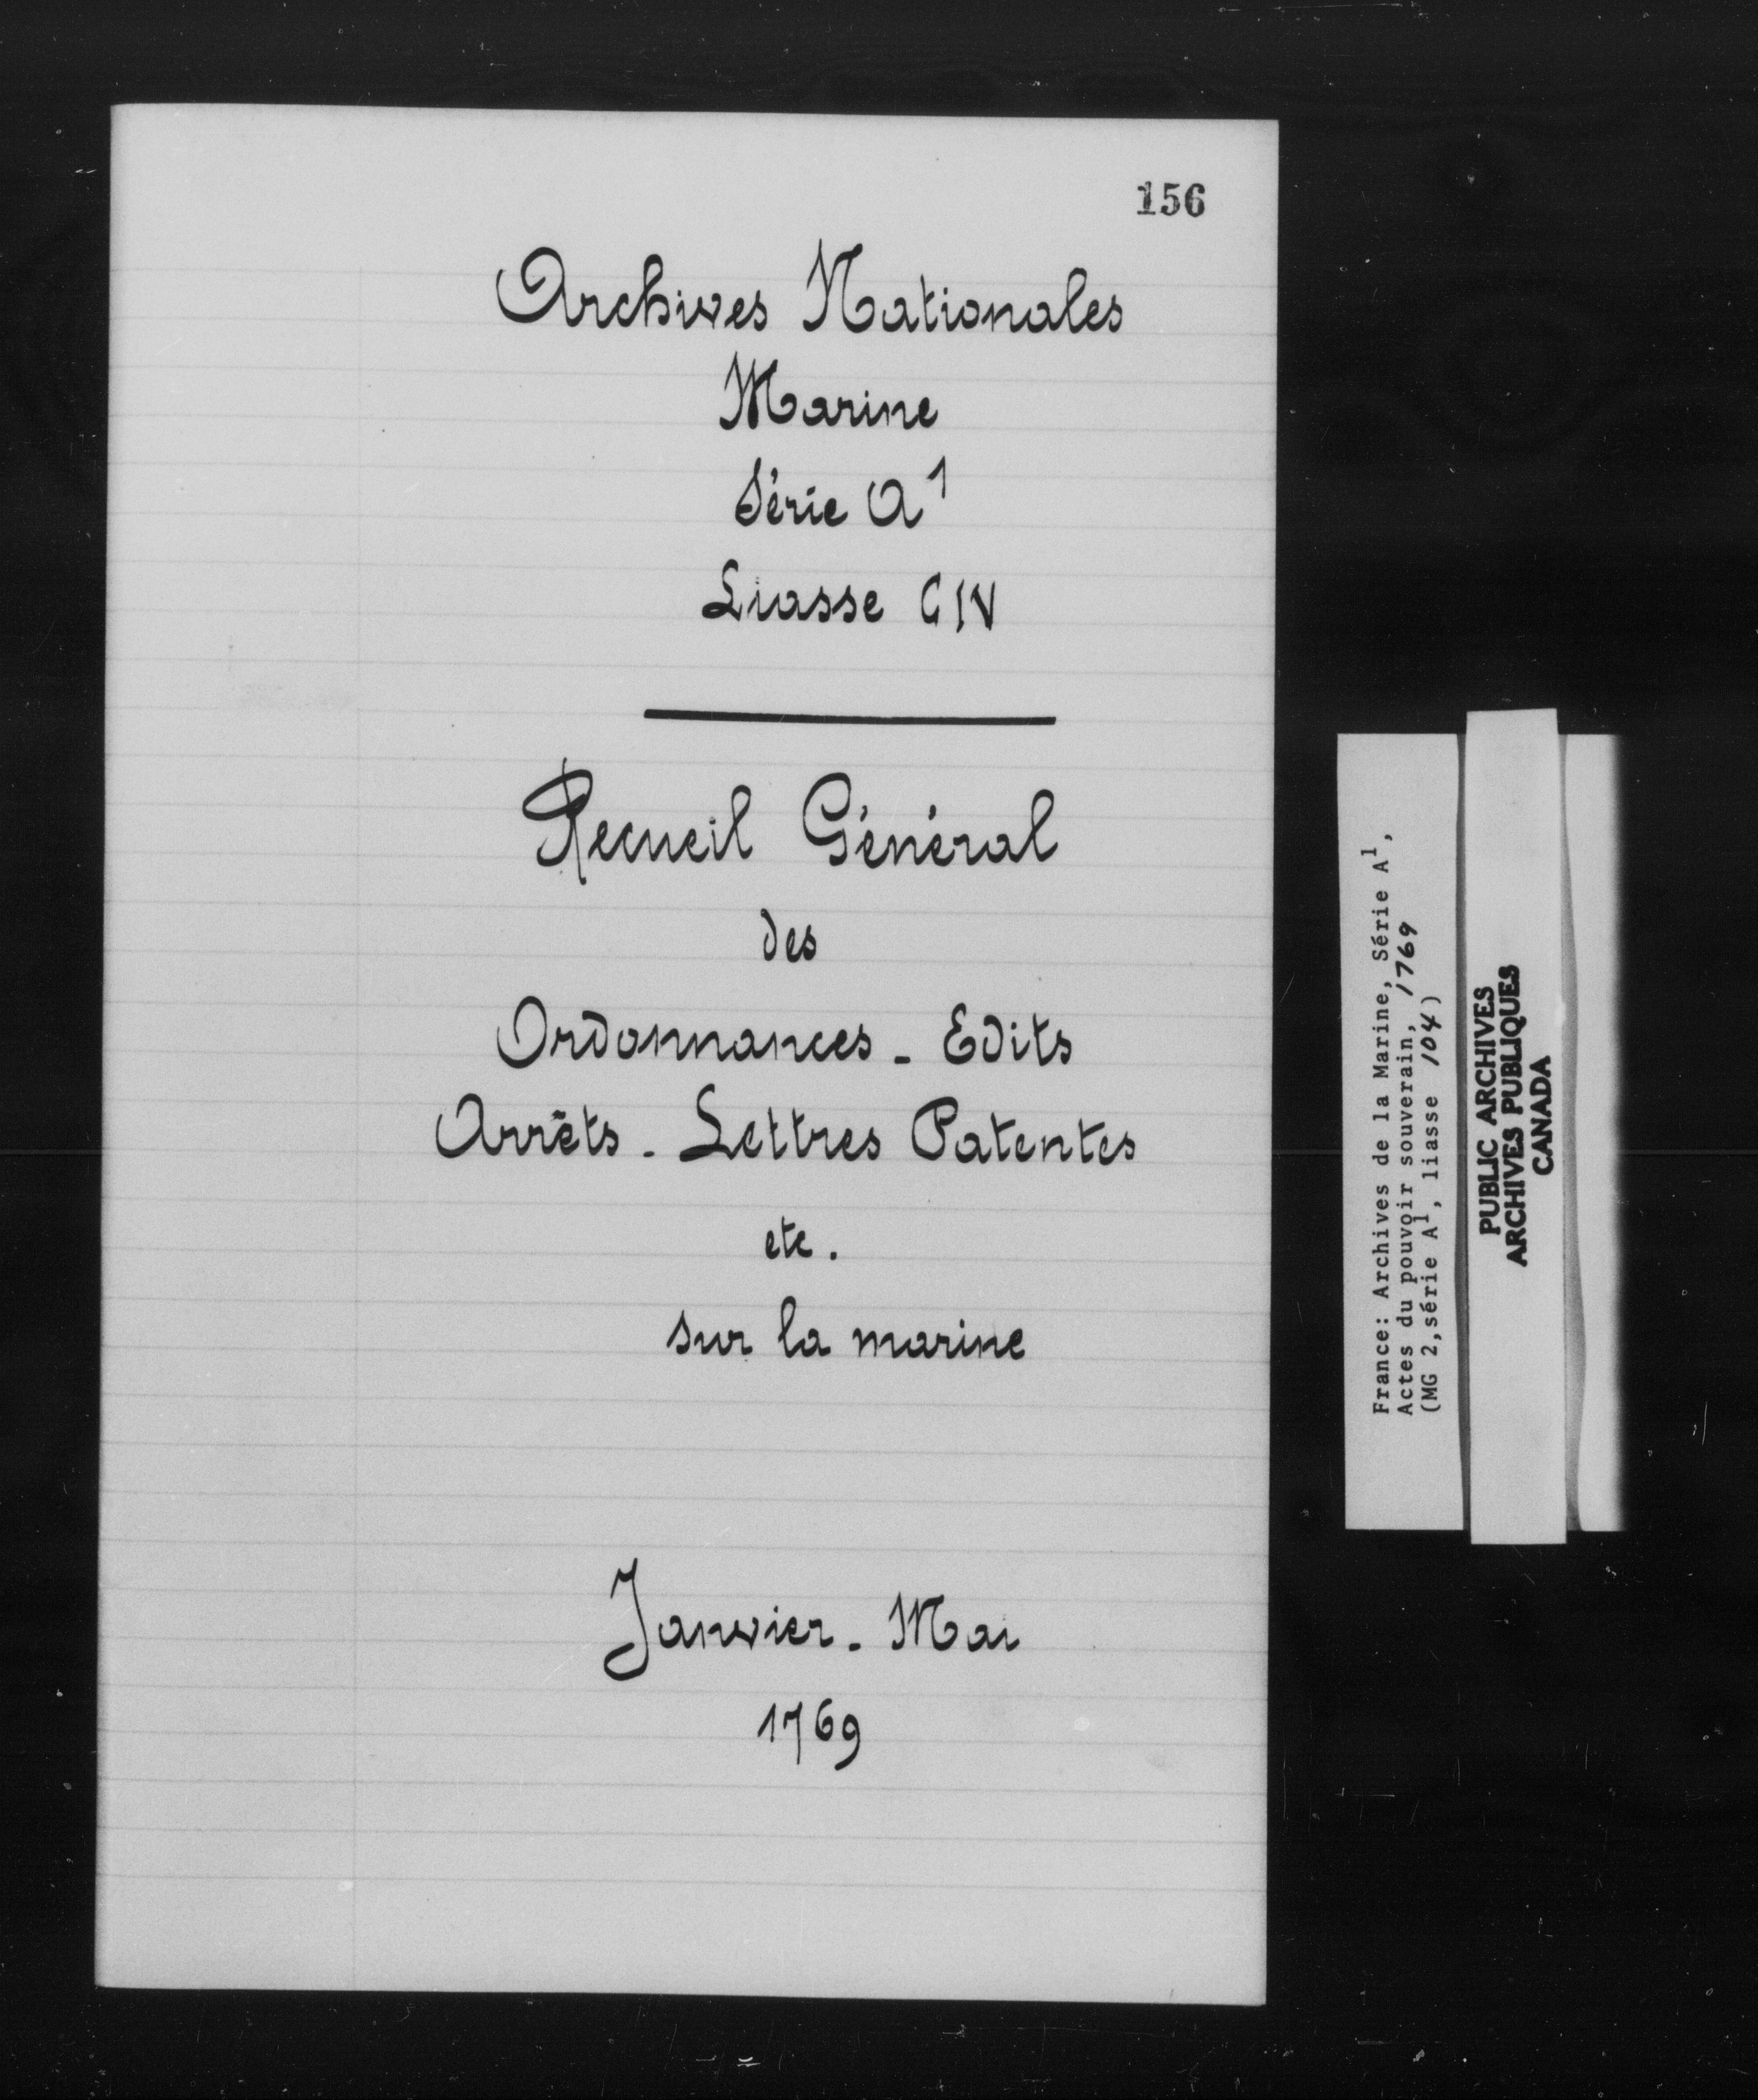 156
Archives Nationales
Marine
Série A¹
Liasse CIV
Recueil Général
des
Ordonnances - Edits
Arrêts - Lettres Patentes
etc.
sur la marine
Janvier - Mai
1769
France: Archives de la Marine, Série A¹,
Actes du pouvoir souverain, 1769
(MG 2, série A¹, liasse 104)
PUBLIC ARCHIVES
ARCHIVES PUBLIQUES
CANADA